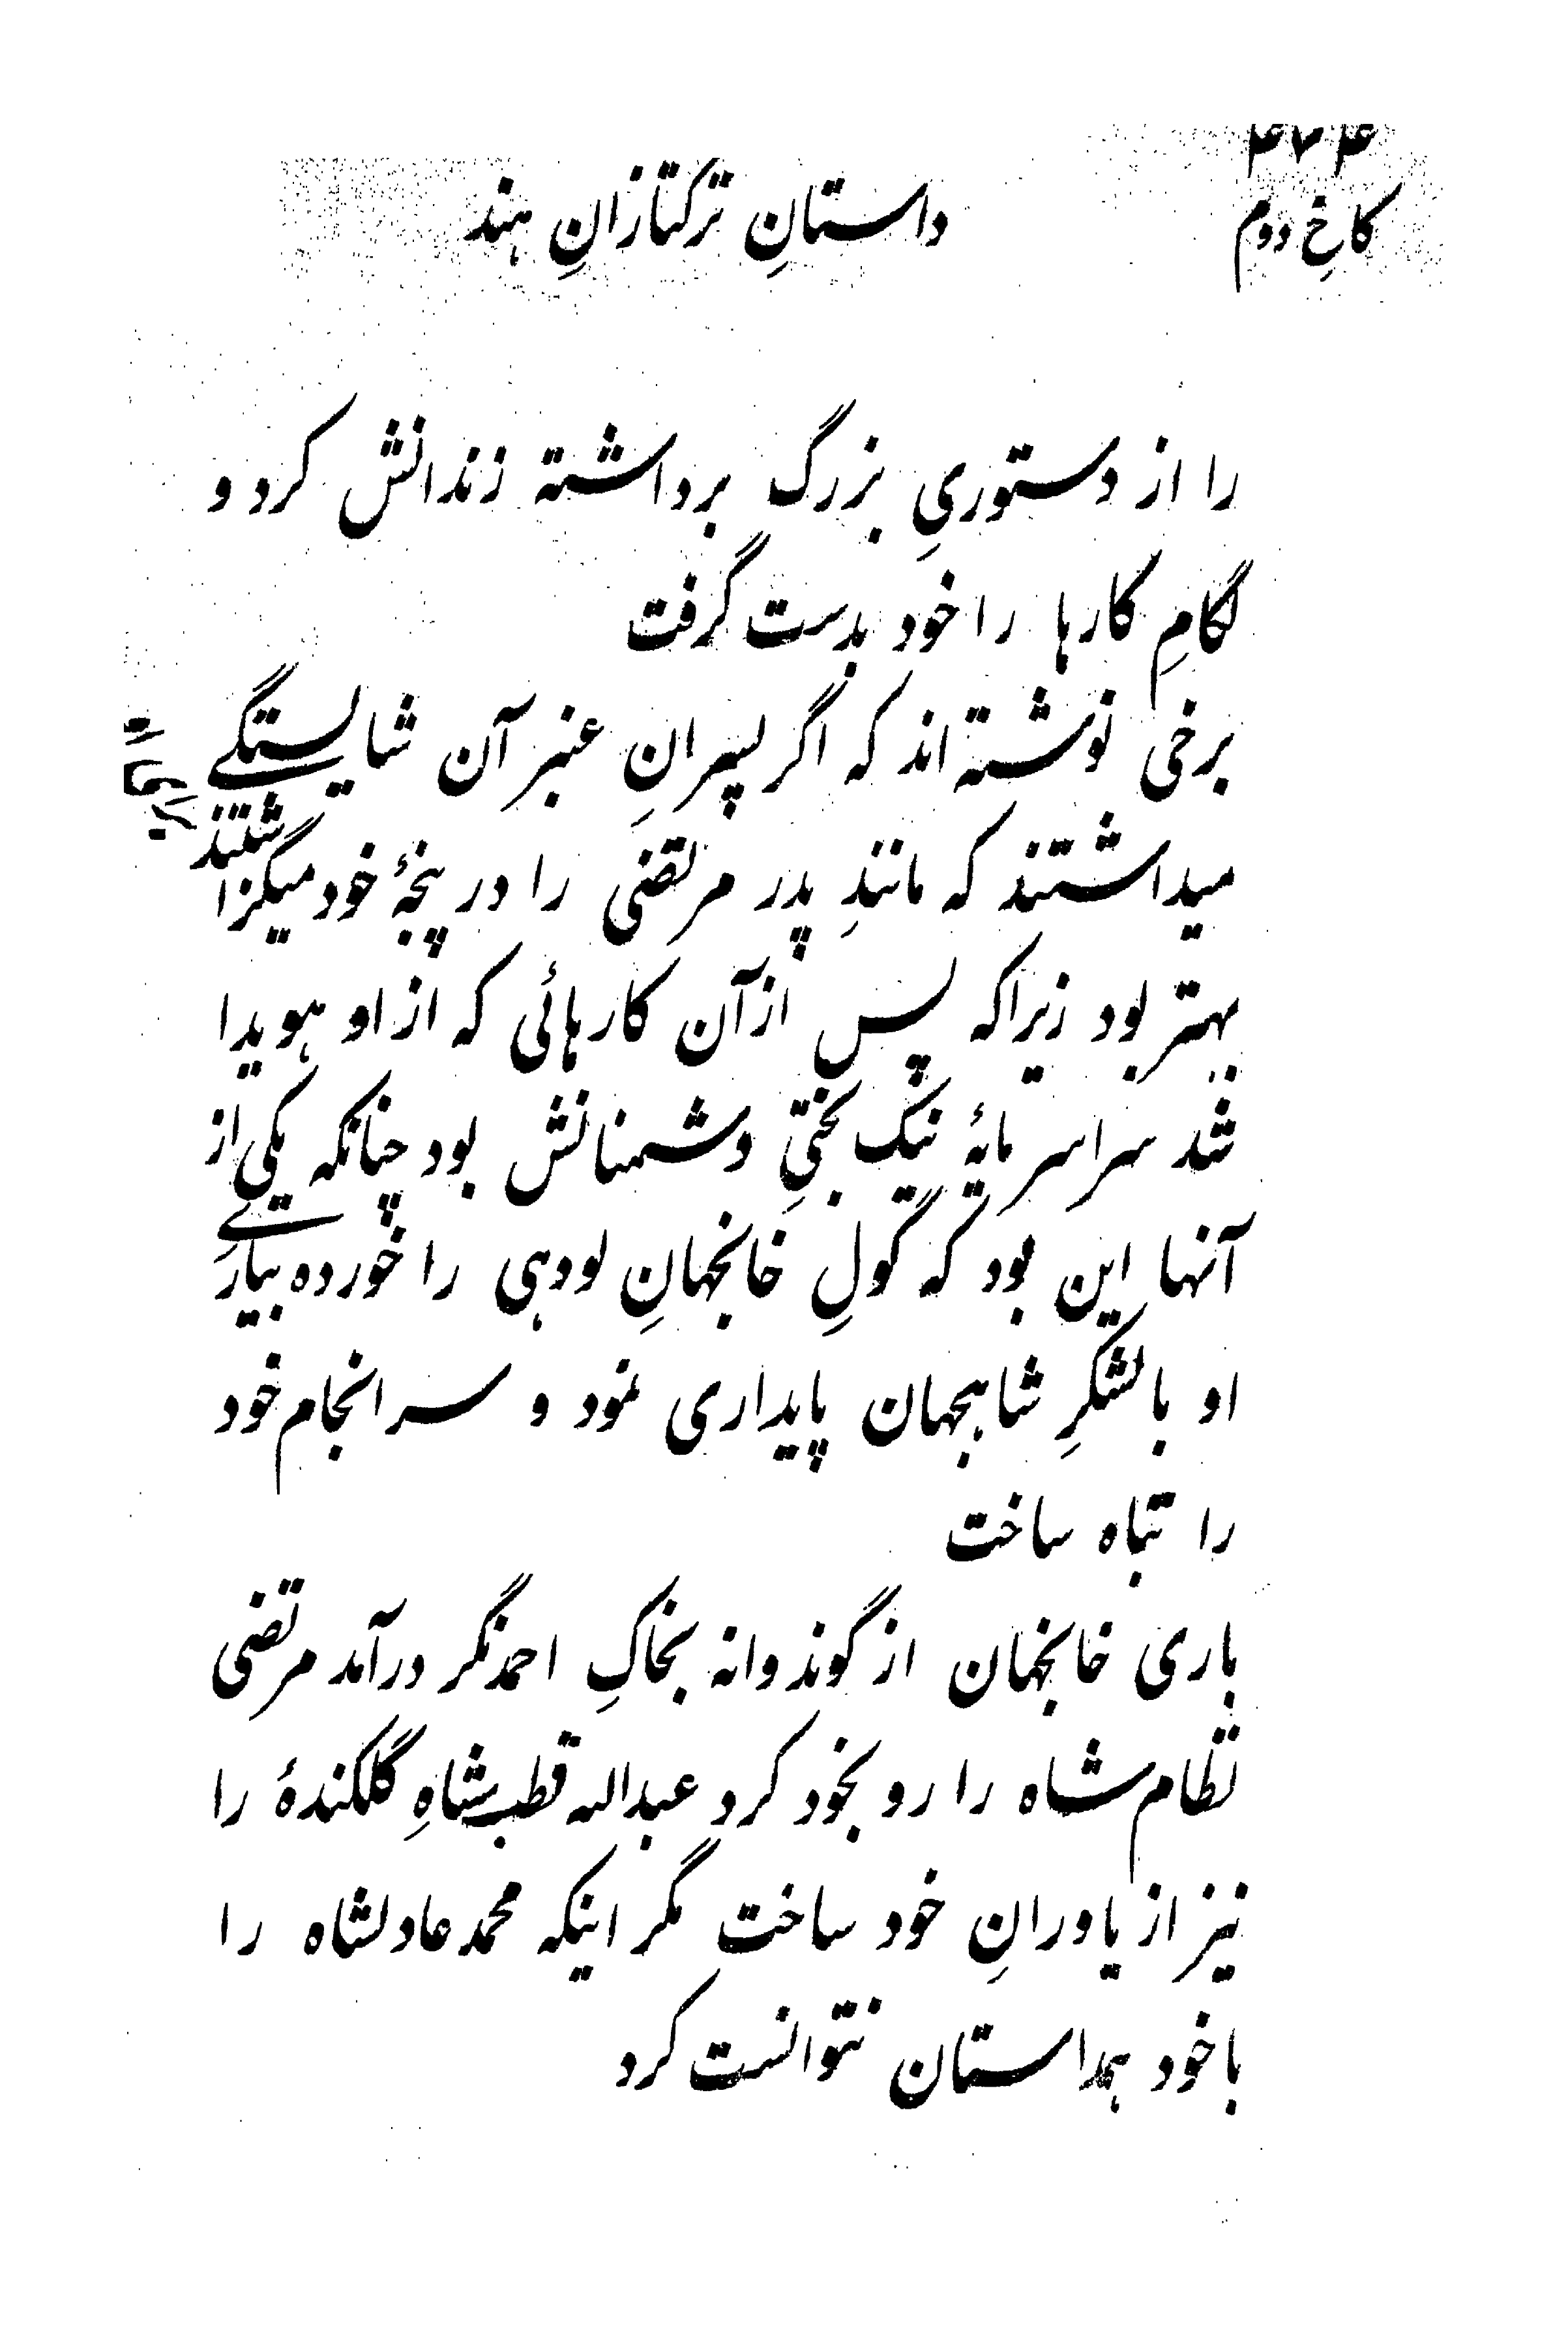 ۴۷۴
کاخِ دوم
داستانِ ترکتازانِ هند
را از دستوریِ بزرگ برداشته زندانش کرد و
لگامِ کارها را خود بدست گرفت
برخی نوشته‌اند که اگر پسرانِ عنبر آن شایستگے
میداشتند که مانندِ پدر مرتضی را در پنجهٔ خود میگزاشتند
بهتر بود زیراکه پس ازآن کارهائی که از او هویدا
شد سراسر مایهٔ نیک بختیِ دشمنانش بود چنانکه یکی از
آنها این بود که گولِ خانجهانِ لودهی را خورده بیارے
او با لشکرِ شاهجهان پایداری نمود و سرانجام خود
را تباه ساخت
باری خانجهان از گوندوانه بخاکِ احمدنگر درآمد مرتضی
نظام شاه را رو بخود کرد عبدالله قطب شاهِ گلکندهٔ را
نیز از یاورانِ خود ساخت مگر اینکه محمد عادلشاه را
با خود همداستان نتوانست کرد